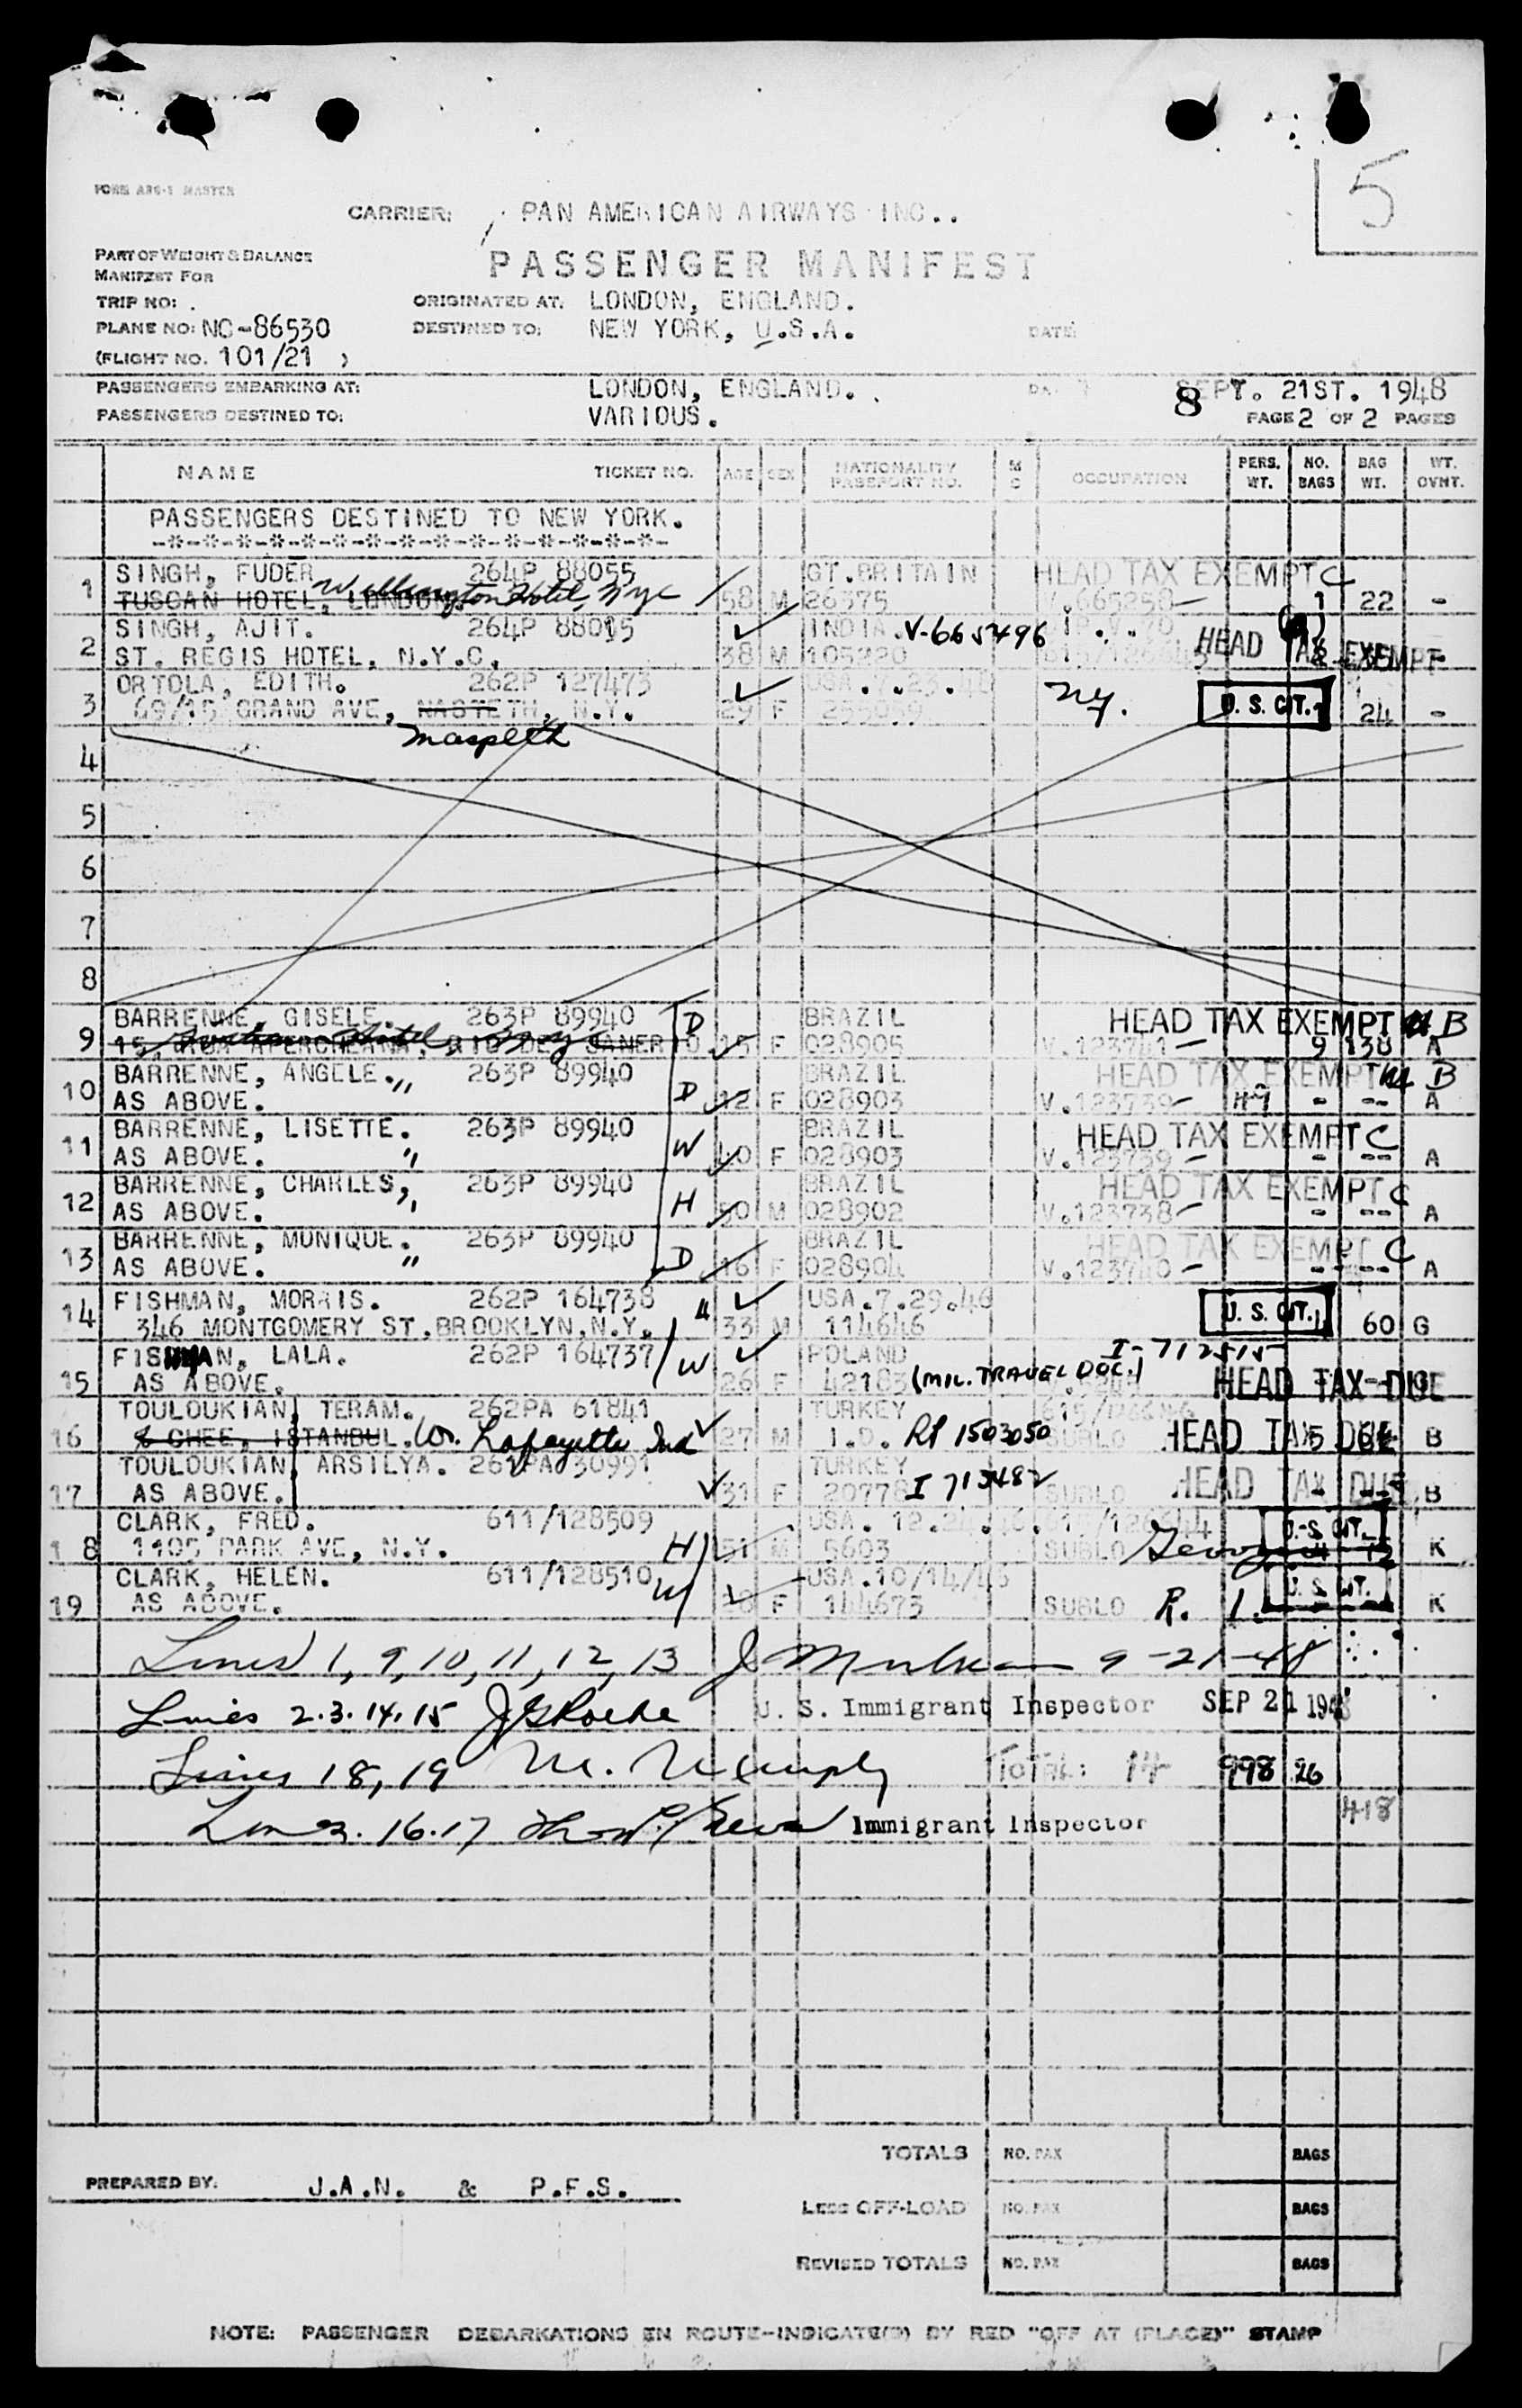 5
FORM ARG-1 MASTER
CARRIER: PAN AMERICAN AIRWAYS INC..
PART OF WEIGHT & BALANCE
MANIFEST FOR
PASSENGER MANIFEST
TRIP NO: .
ORIGINATED AT: LONDON, ENGLAND.
PLANE NO: NC-86530
DESTINED TO: NEW YORK, U.S.A.
DATE:
(FLIGHT NO. 101/21 )
PASSENGERS EMBARKING AT: LONDON, ENGLAND. . SEPT. 21ST. 1948
8
PASSENGERS DESTINED TO: VARIOUS. PAGE 2 OF 2 PAGES
NAME TICKET NO. AGE SEX NATIONALITY PASSPORT NO. M C OCCUPATION PERS. WT. NO. BAGS BAG WT. WT. OVHT.
PASSENGERS DESTINED TO NEW YORK.
-*-*-*-*-*-*-*-*-*-*-*-*-*-*-*-*-
SINGH, FUDER 264P 88055 GT.BRITAIN HEAD TAX EXEMPT C
1 TUSCAN HOTEL, LONDON Wellington Hotel, Nyc 58 M 26575 V.665258- 1 22 -
SINGH, AJIT. 264P 88015 INDIA. V-665496
2 ST. REGIS HOTEL, N.Y.C. 38 M 105220 HEAD TAX EXEMPT -
ORTOLA, EDITH. 262P 127473 USA.7.23.46 ny. U. S. CIT.
3 69/15 GRAND AVE, N.Y. 29 F 1 24 -
Maspeth
4
5
6
7
8
BARRENNE, GISELE. 263P 89940 D BRAZIL HEAD TAX EXEMPT B
9 15 F 028905 V.123741- 9 138 A
BARRENNE, ANGELE. " 263P 89940 BRAZIL HEAD TAX EXEMPT B
10 AS ABOVE. D 12 F 028903 V.123739- - -- A
BARRENNE, LISETTE. 263P 89940 BRAZIL HEAD TAX EXEMPT C
11 AS ABOVE. " W 40 F 028903 V.123739- - -- A
BARRENNE, CHARLES, 263P 89940 BRAZIL HEAD TAX EXEMPT C
12 AS ABOVE. " H 50 M 028902 V.123738- - -- A
BARRENNE, MONIQUE. 263P 89940 BRAZIL HEAD TAX EXEMPT C
13 AS ABOVE. " D 16 F 028904 V.123740- - -- A
FISHMAN, MORRIS. 262P 164738 USA.7.29.46 U. S. CIT.
14 346 MONTGOMERY ST.BROOKLYN,N.Y. H 33 M 114646 60 G
FISHMAN, LALA. 262P 164737 W POLAND I-712515
15 AS ABOVE. 26 F 42183 (MIL. TRAVEL DOC.) HEAD TAX DUE
TOULOUKIAN, TERAM. 262PA 61841 TURKEY
16 W. Lafayette Ind 27 M I.D. RP 1503050 SUBLO HEAD TAX DUE B
TOULOUKIAN, ARSILYA. 261PA 30991 TURKEY
17 AS ABOVE. 31 F 20778 I 713482 SUBLO HEAD TAX DUE B
CLARK, FRED. 611/128509 USA. 12.24.46. 615/126644 U. S. CIT.
18 1105 PARK AVE, N.Y. H 51 M 5603 SUBLO Georgia K
CLARK, HELEN. 611/128510 W USA.10/14/46 U. S. CIT.
19 AS ABOVE. F 144673 SUBLO R. I. K
Lines 1, 9, 10, 11, 12, 13 9-21-48
Lines 2.3.14.15 J G Roche U. S. Immigrant Inspector SEP 21 1948
Lines 18, 19 TOTAL: 14 998 26
Lines. 16.17 Immigrant Inspector 418
TOTALS NO. PAX BAGS
PREPARED BY: J.A.N. & P.F.S.
LESS OFF-LOAD NO. PAX BAGS
REVISED TOTALS NO. PAX BAGS
NOTE: PASSENGER DEBARKATIONS EN ROUTE-INDICATE(D) BY RED "OFF AT (PLACE)" STAMP